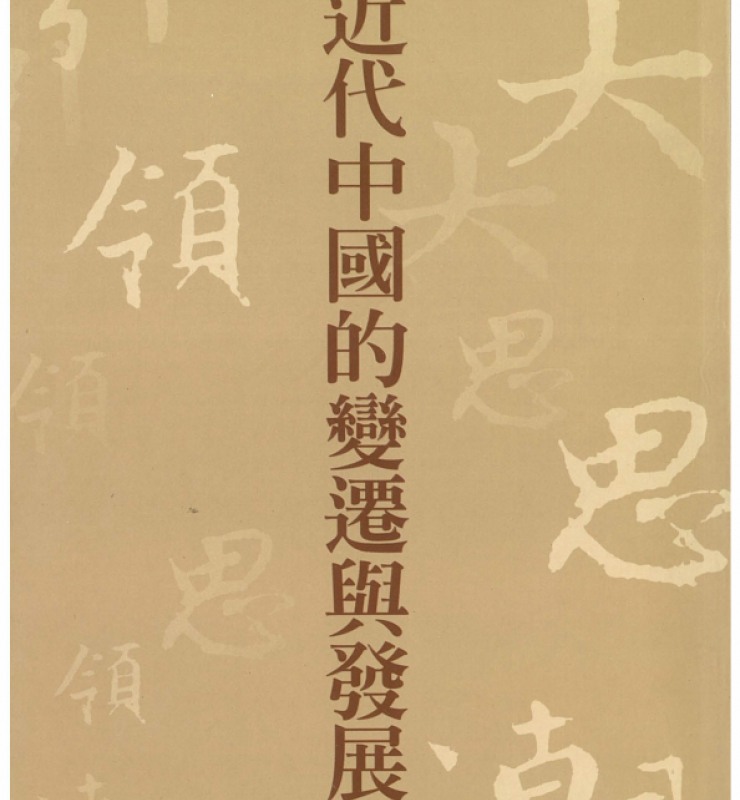 近代中國的變遷與發展
大
大
思
思
領
領
思
領